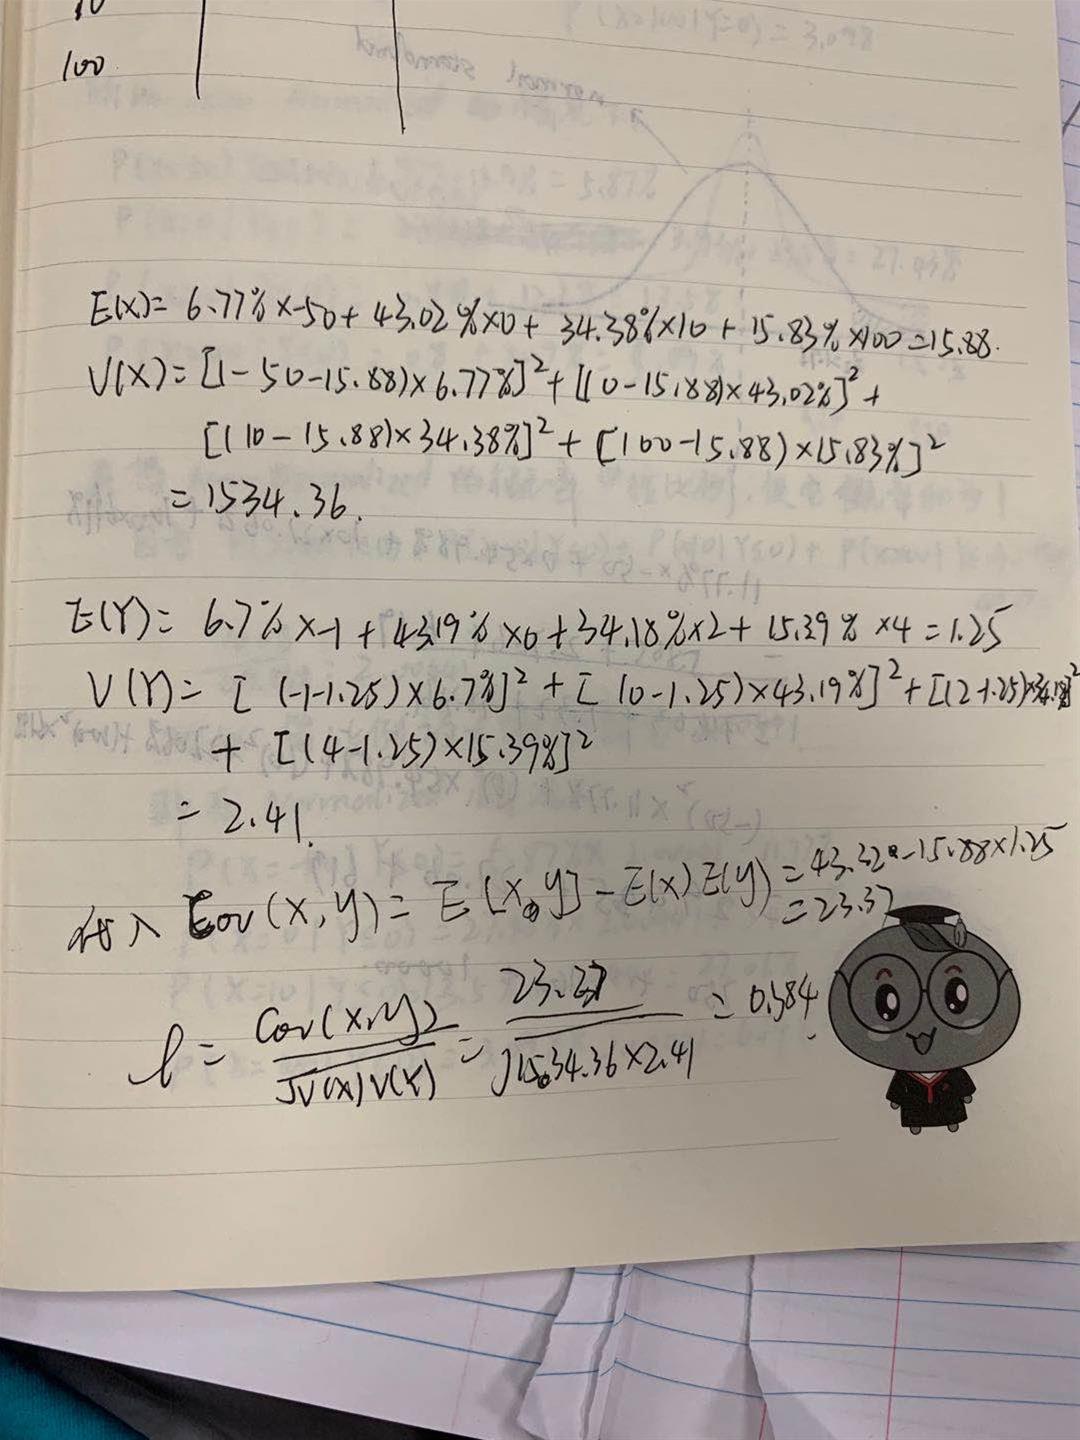 10
100
E(X)= 6.77%×-50+ 43.02%×0+ 34.38%×10+ 15.83%×100=15.88.
V(X)= [(-50-15.88)×6.77%]²+[(0-15.88)×43.02%]²+
[(10-15.88)×34.38%]²+[100-15.88)×15.83%]²
=1534.36.
E(Y)= 6.7%×-1+43.19%×0+34.18%×2+15.39%×4=1.25
V(Y)= [(-1-1.25)×6.7%]²+[(0-1.25)×43.19%]²+[(2-1.25)×34.18%]²
+ [(4-1.25)×15.39%]²
=2.41.
代入 Cov(X,Y)= E[X,Y]-E(X)E(Y)=43.22-15.88×1.25
=23.37
ρ= Cov(X,Y) / √V(X)V(Y) = 23.37 / √1534.36×2.41 = 0.384